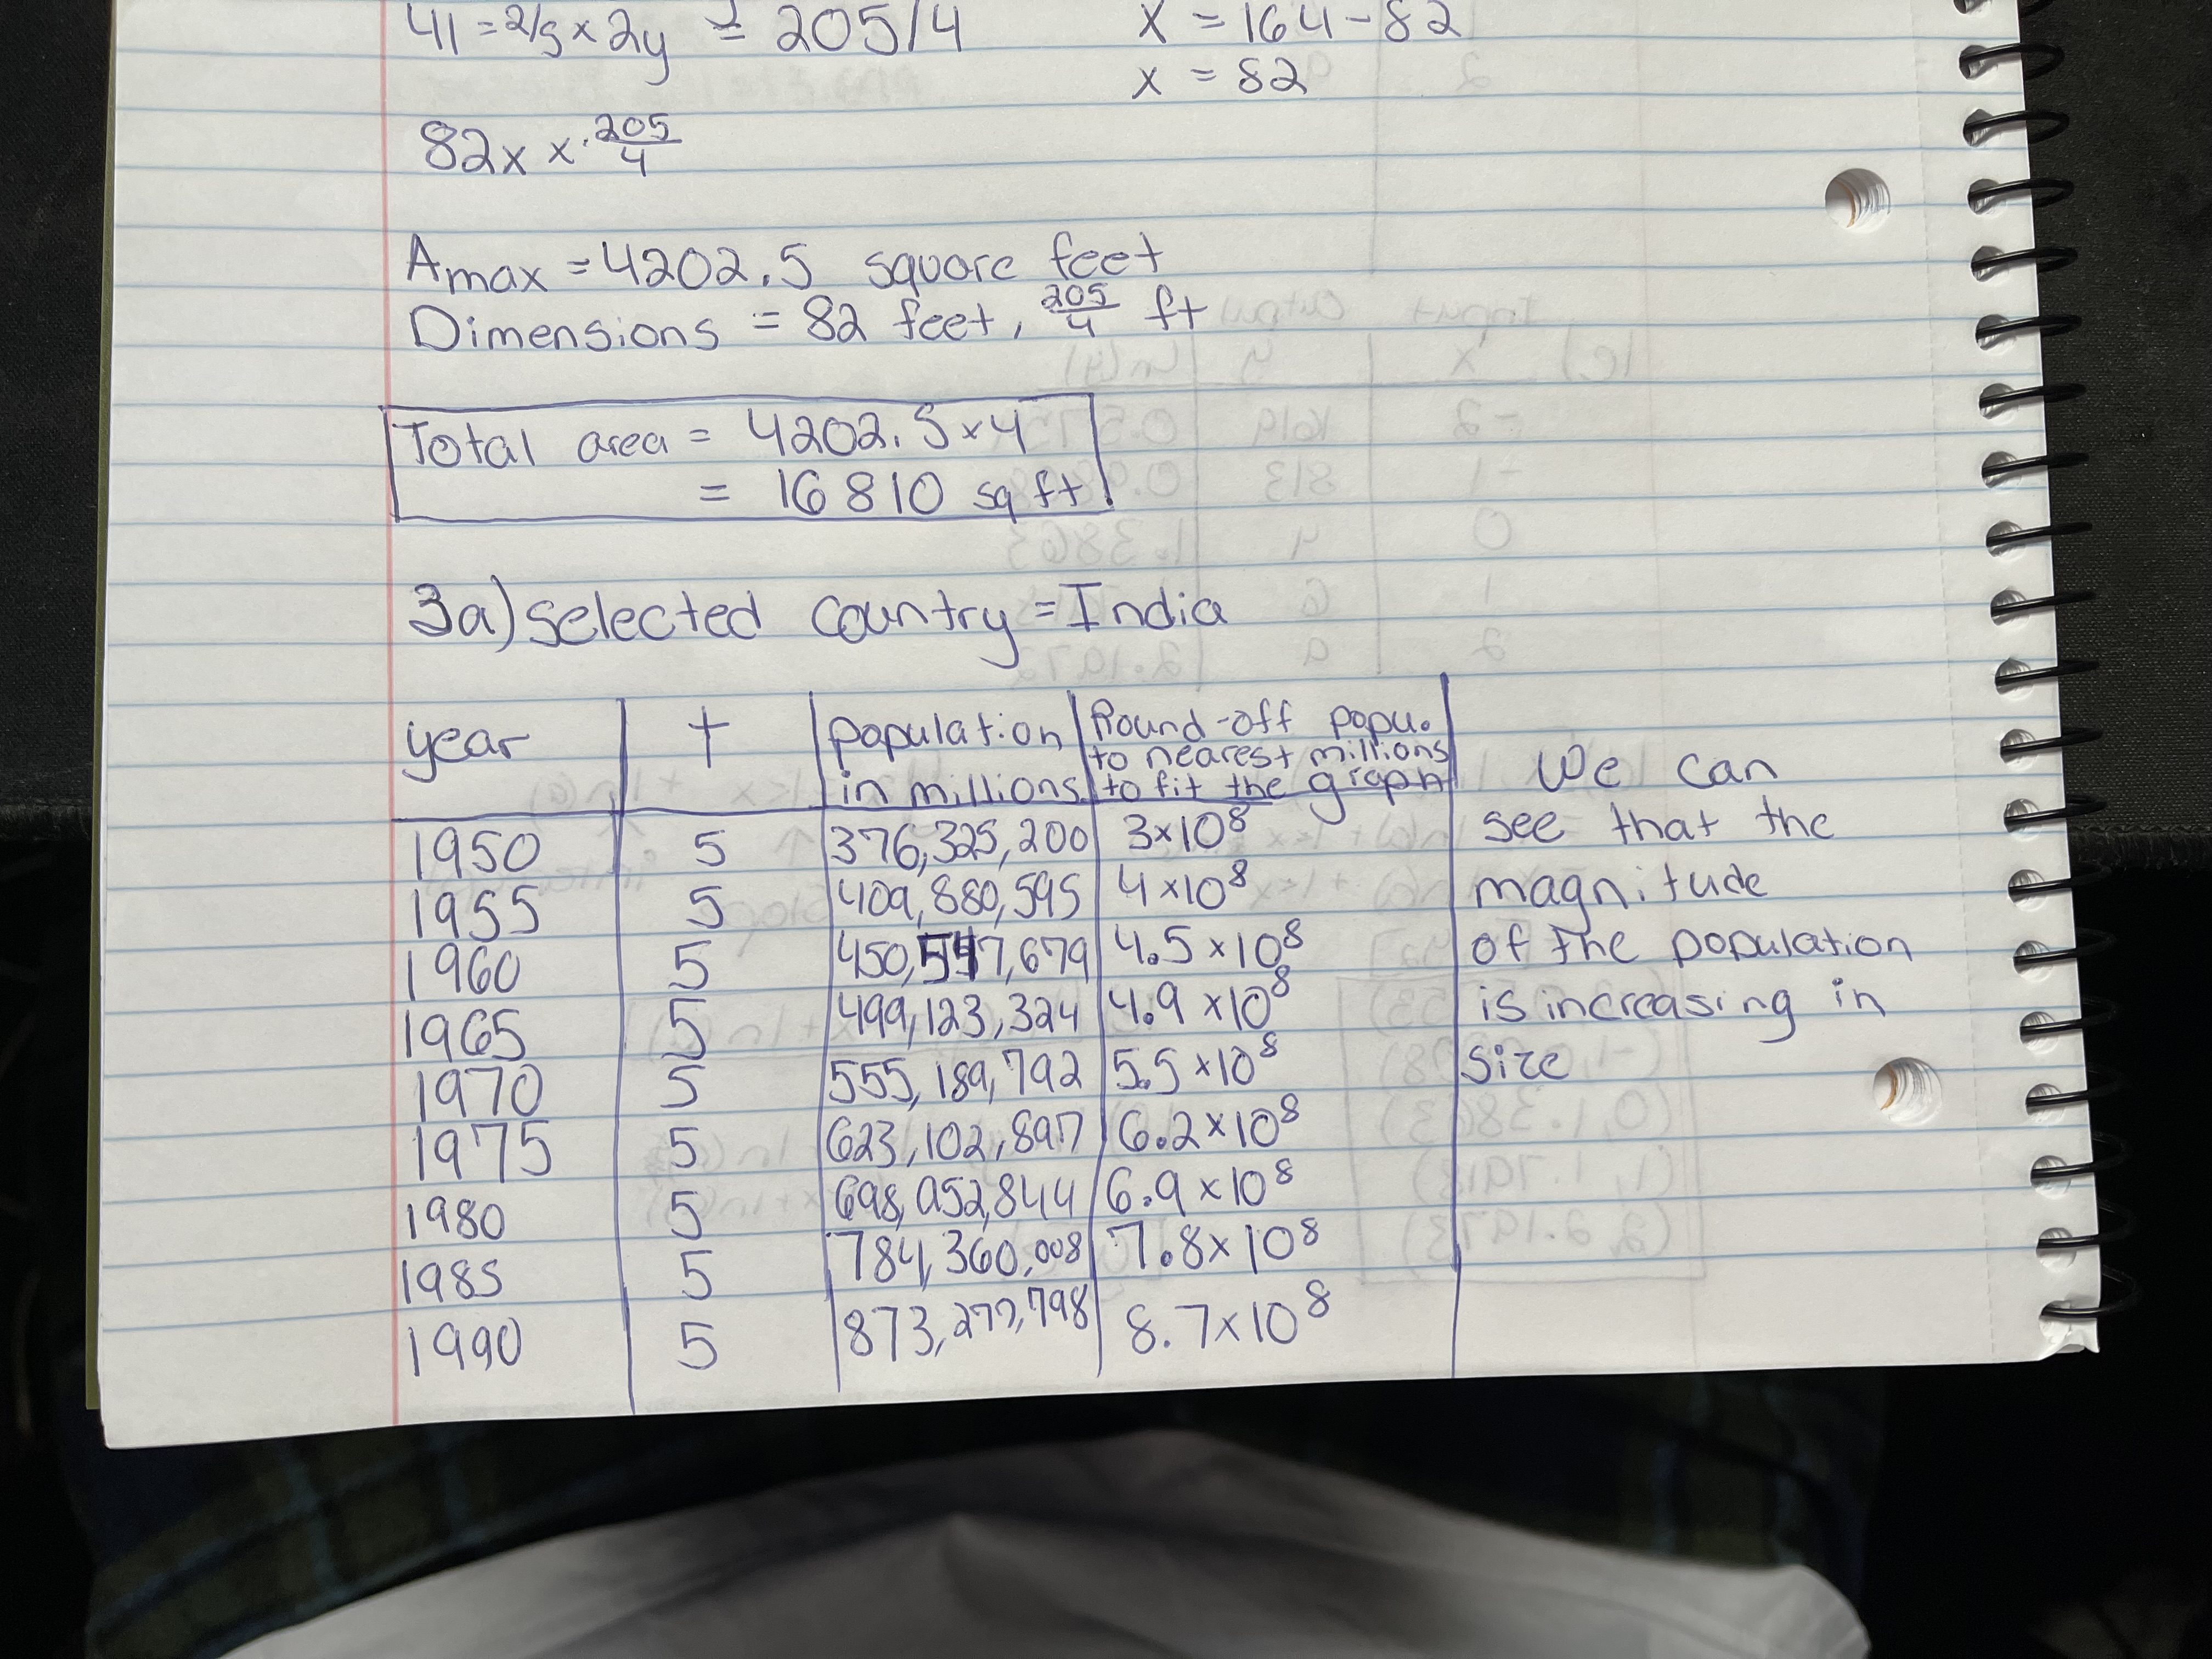 41 = 2/5 x 2y = 205/4 x = 164 - 82
x = 82
82x x · 205/4
Amax = 4202.5 square feet
Dimensions = 82 feet, 205/4 ft
Total area = 4202.5 x 4
= 16810 sq ft
3a) selected country = India
year t population in millions Round-off popu. to nearest millions to fit the graph
1950 5 376,325,200 3x10^8
1955 5 409,880,595 4x10^8
1960 5 450,547,679 4.5x10^8
1965 5 499,123,324 4.9x10^8
1970 5 555,189,792 5.5x10^8
1975 5 623,102,897 6.2x10^8
1980 5 698,952,844 6.9x10^8
1985 5 784,360,008 7.8x10^8
1990 5 873,277,798 8.7x10^8
We can
see that the
magnitude
of the population
is increasing in
size